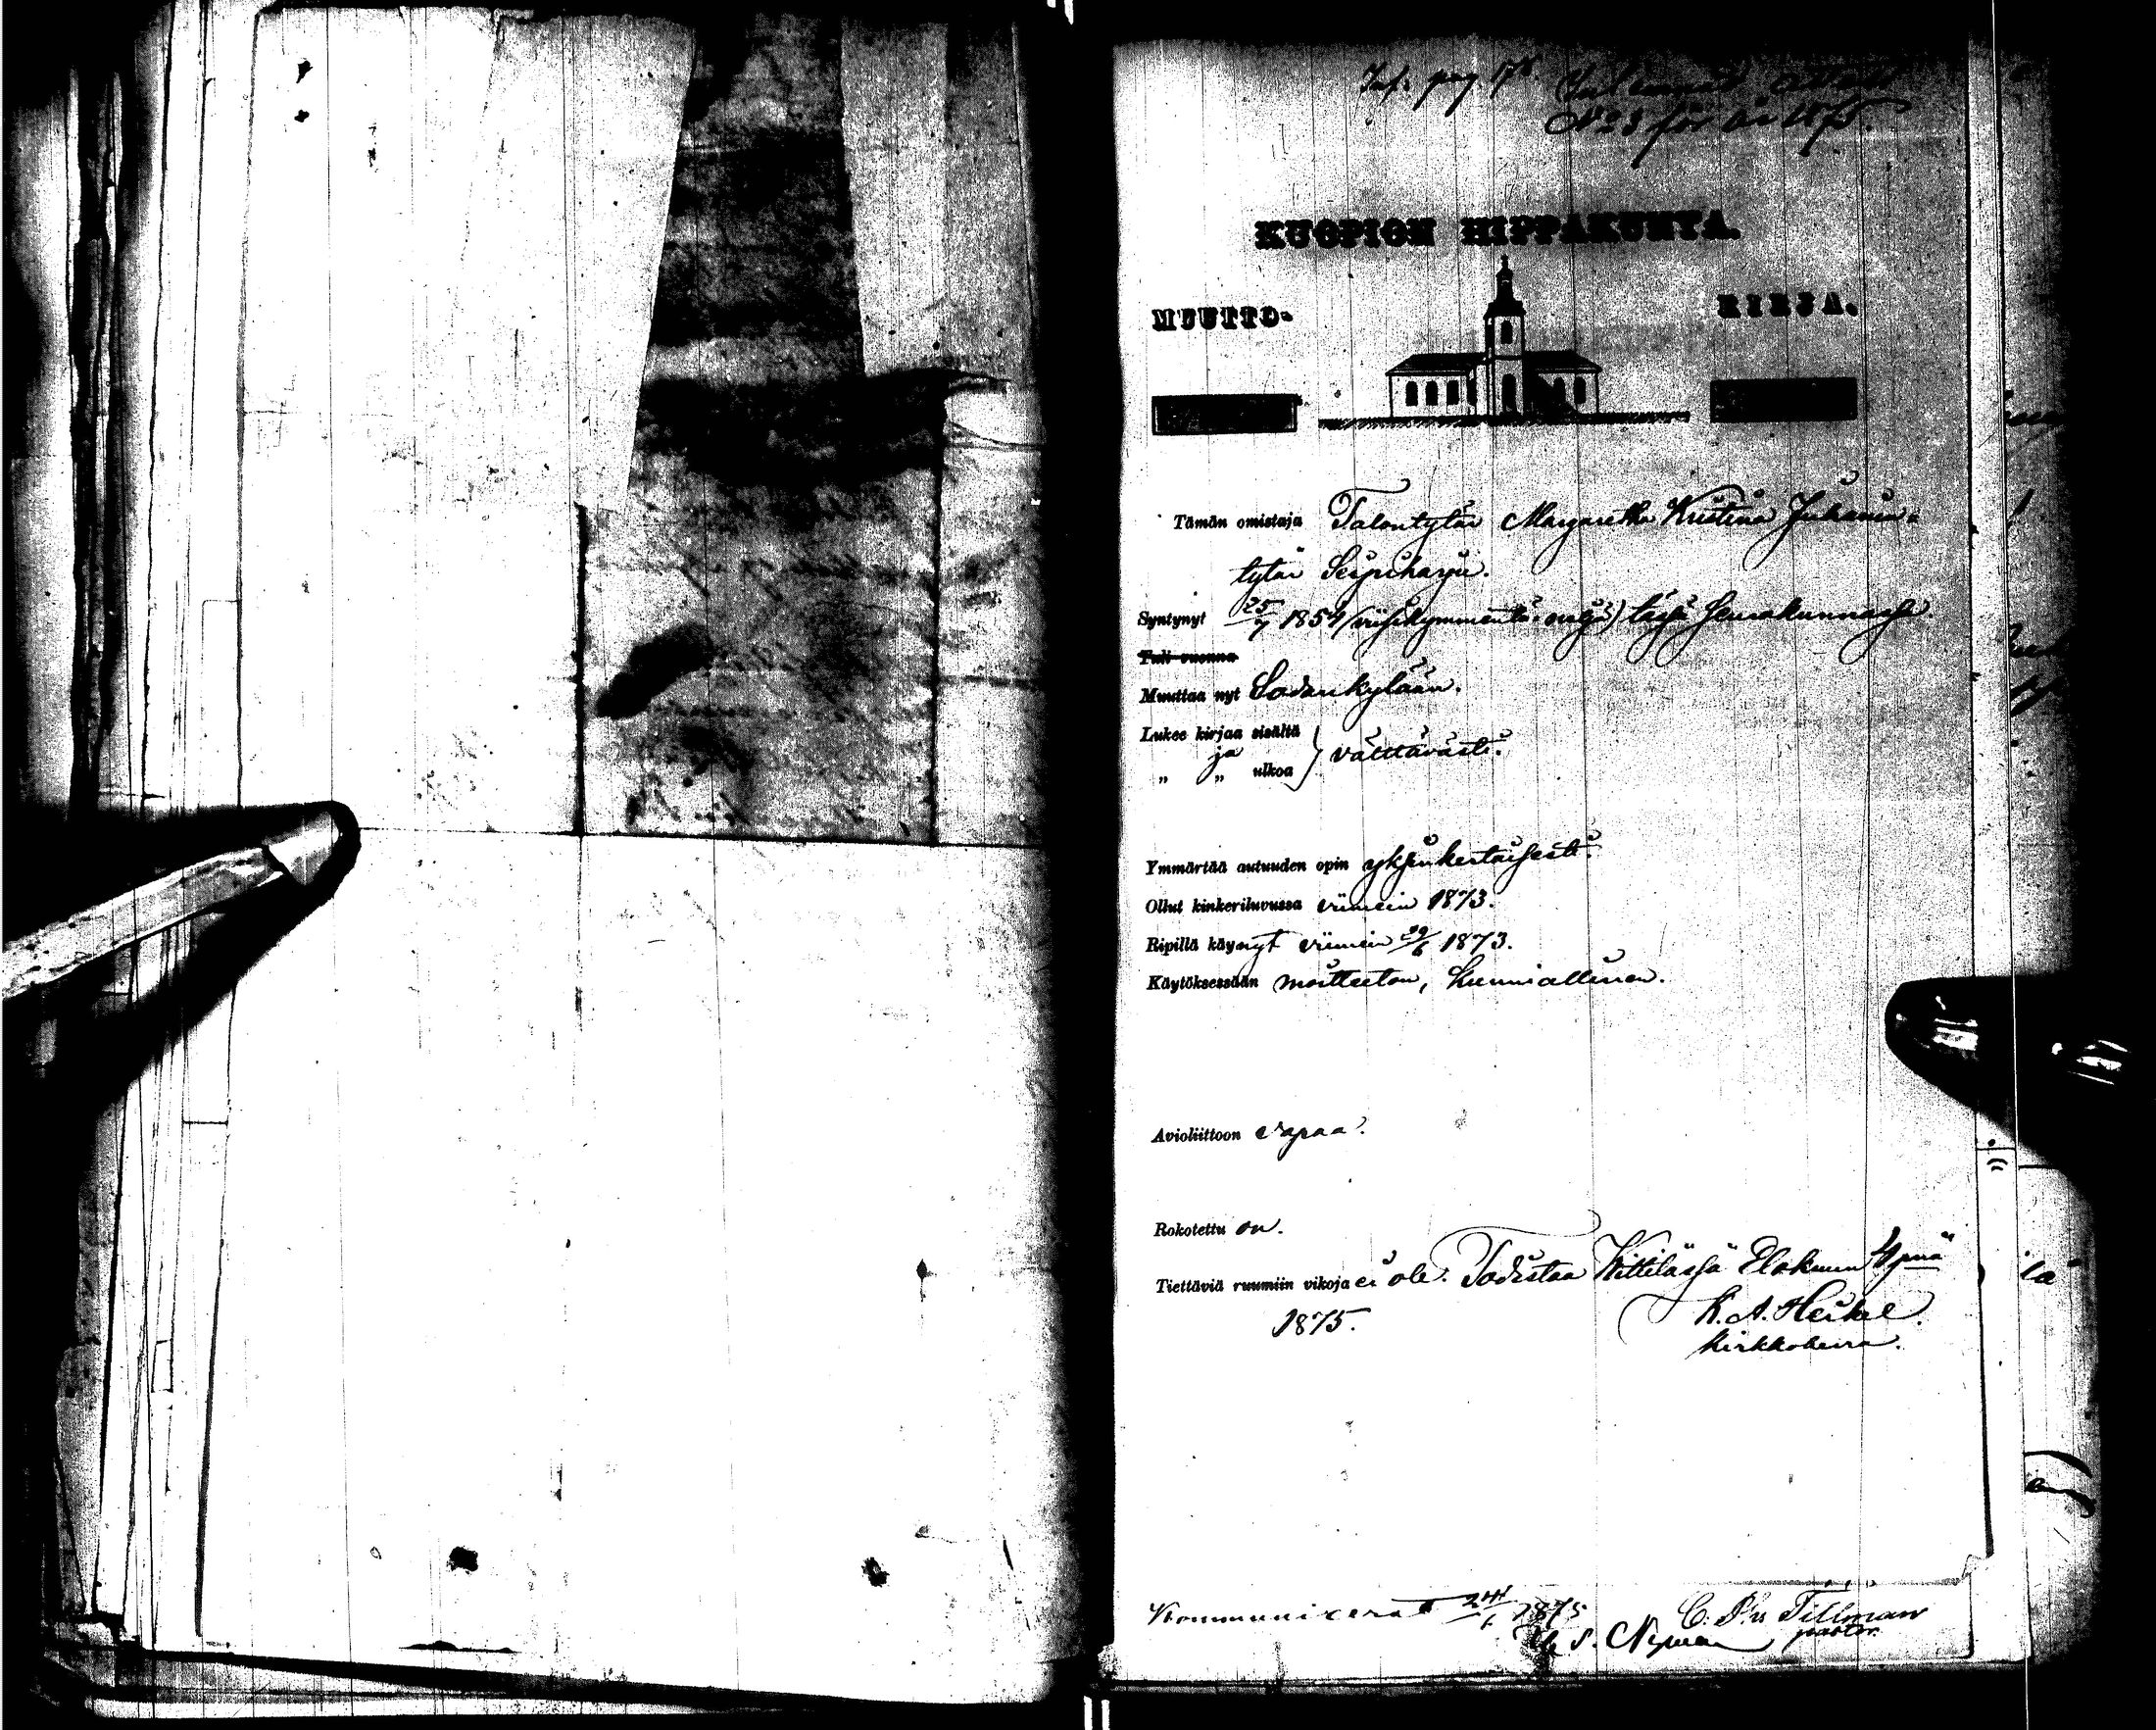 Inf: pag 178.
N:o 3 för år 1875.
KUOPION HIPPAKUNTA.
MUUTTO- KIRJA.
Tämän omistaja Talontytär Margaretha Kristina Juhanin-
tytär Seipiharju.
Syntynyt 25/7 1854 (viisikymmentä neljä) tässä Seurakunnassa.
Tuli vuonna
Muuttaa nyt Sodankylään.
Lukee kirjaa sisältä
ja } välttävästi.
„ „ ulkoa
Ymmärtää autuuden opin yksinkertaisesti.
Ollut kinkeriluvussa viimein 1873.
Ripillä käynyt viimein 29/6 1873.
Käytöksessään moitteeton, kunniallinen.
Avioliittoon vapaa.
Rokotettu on.
Tiettäviä ruumiin vikoja ei ole. Todistaa Kittilässä Elokuun 4 pnä
1875.
K. A. Heikel.
Kirkkoherra.
Kommunicerat 24/6 1875
C. Tillman
pastor.
S. Nyman